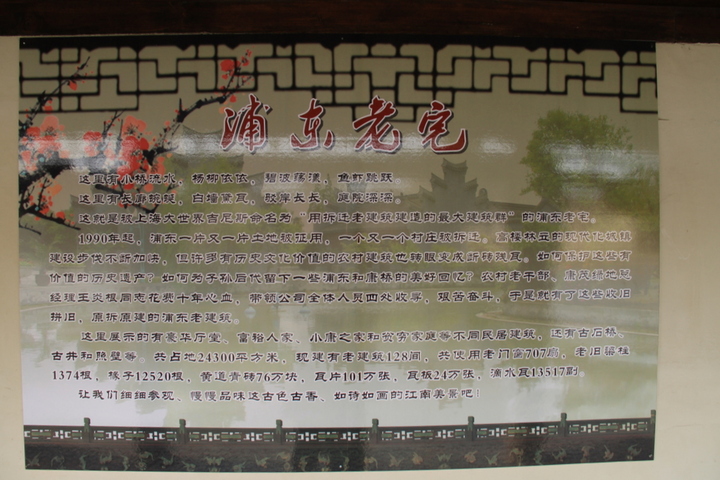 浦东老宅
这里有小桥流水，杨柳依依，碧波荡漾，鱼虾跳跃。
这里有长廊蜿蜒，白墙黛瓦，驳岸长长，庭院深深。
这就是被上海大世界吉尼斯命名为“用拆迁老建筑建造的最大建筑群”的浦东老宅。
1990年起，浦东一片又一片土地被征用，一个又一个村庄被拆迁。高楼林立的现代化城镇
建设步伐不断加快，但许多有历史文化价值的农村建筑也转眼变成断砖残瓦。如何保护这些有
价值的历史遗产？如何为子孙后代留下一些浦东和唐桥的美好回忆？农村老干部、唐茂绿地总
经理王炎根同志花费十年心血，带领公司全体人员四处收寻，艰苦奋斗，于是就有了这些收旧
拼旧，原拆原建的浦东老建筑。
这里展示的有豪华厅堂、富裕人家、小康之家和贫穷家庭等不同民居建筑，还有古石桥、
古井和照壁等。共占地24300平方米，现建有老建筑128间，共使用老门窗707扇，老旧梁柱
1374根，椽子12520根，黄道青砖76万块，瓦片101万张，瓦板24万张，滴水瓦13517副。
让我们细细参观、慢慢品味这古色古香、如诗如画的江南美景吧！